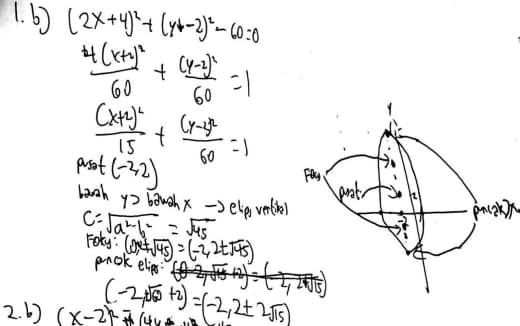 1.b) (2x+4)²+(y-2)²-60=0
4(x+2)²/60 + (y-2)²/60 = 1
(x+2)²/15 + (y-2)²/60 = 1
pusat (-2,2)
bawah y > bawah x → elips vertikal
C=√a²-b² = √45
Foku: = (-2,2±√45)
puncak elips:
(-2,±√60+2) = (-2,2±2√15)
Foku
pusat
2
puncak
2.b) (x-2)²